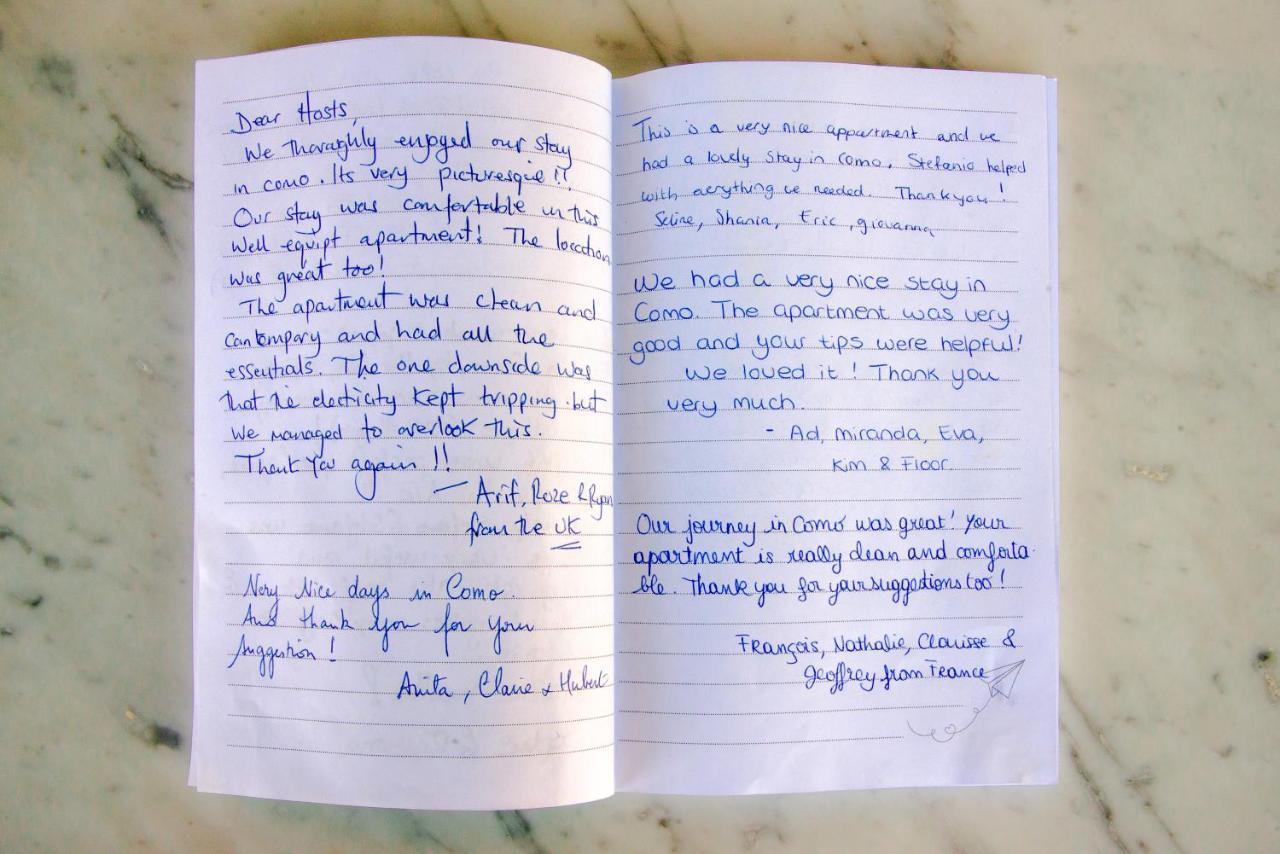 Dear Hosts,
We thoraghly enjoyed our stay
in como. Its very picturesque!!
Our stay was comfortable in this
well equipt apartment! The location
was great too!
The apartment was clean and
contempary and had all the
essentials. The one downside was
that the electicity kept tripping but
we managed to overlook this.
Thank you again!!
— Arif, Roze & Ryan
from the UK
Very Nice days in Como.
And thank you for your
suggestion!
Anita, Claire & Hubert
This is a very nice appartment and we
had a lovely stay in como. Stefania helped
with aerything we needed. Thankyou!
Seline, Shania, Eric, giovanna
We had a very nice stay in
Como. The apartment was very
good and your tips were helpful!
We loved it! Thank you
very much.
- Ad, miranda, Eva,
Kim & Floor.
Our journey in Como was great! Your
apartment is really clean and comforta-
ble. Thank you for your suggestions too!
François, Nathalie, Clarisse &
Geoffrey from France